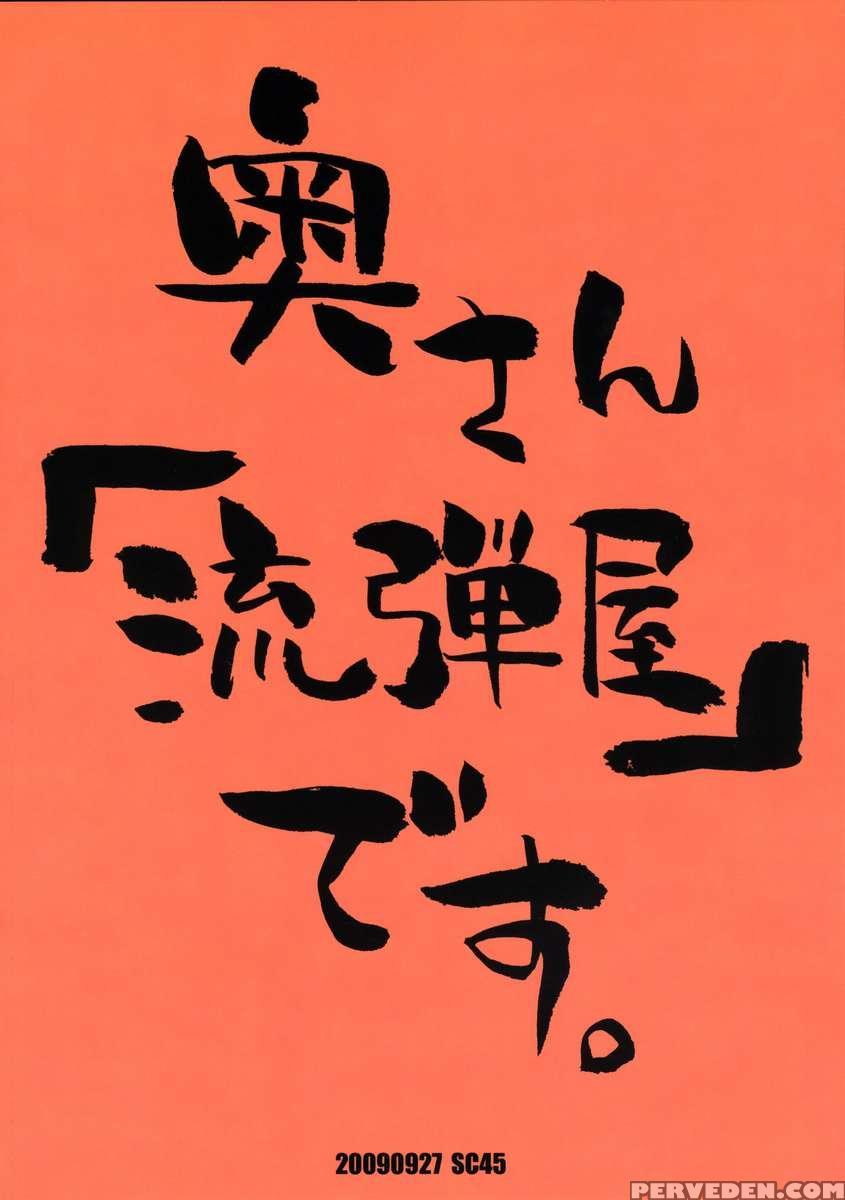 奥さん
「流弾屋」
です。
20090927 SC45
PERVEDEN.COM